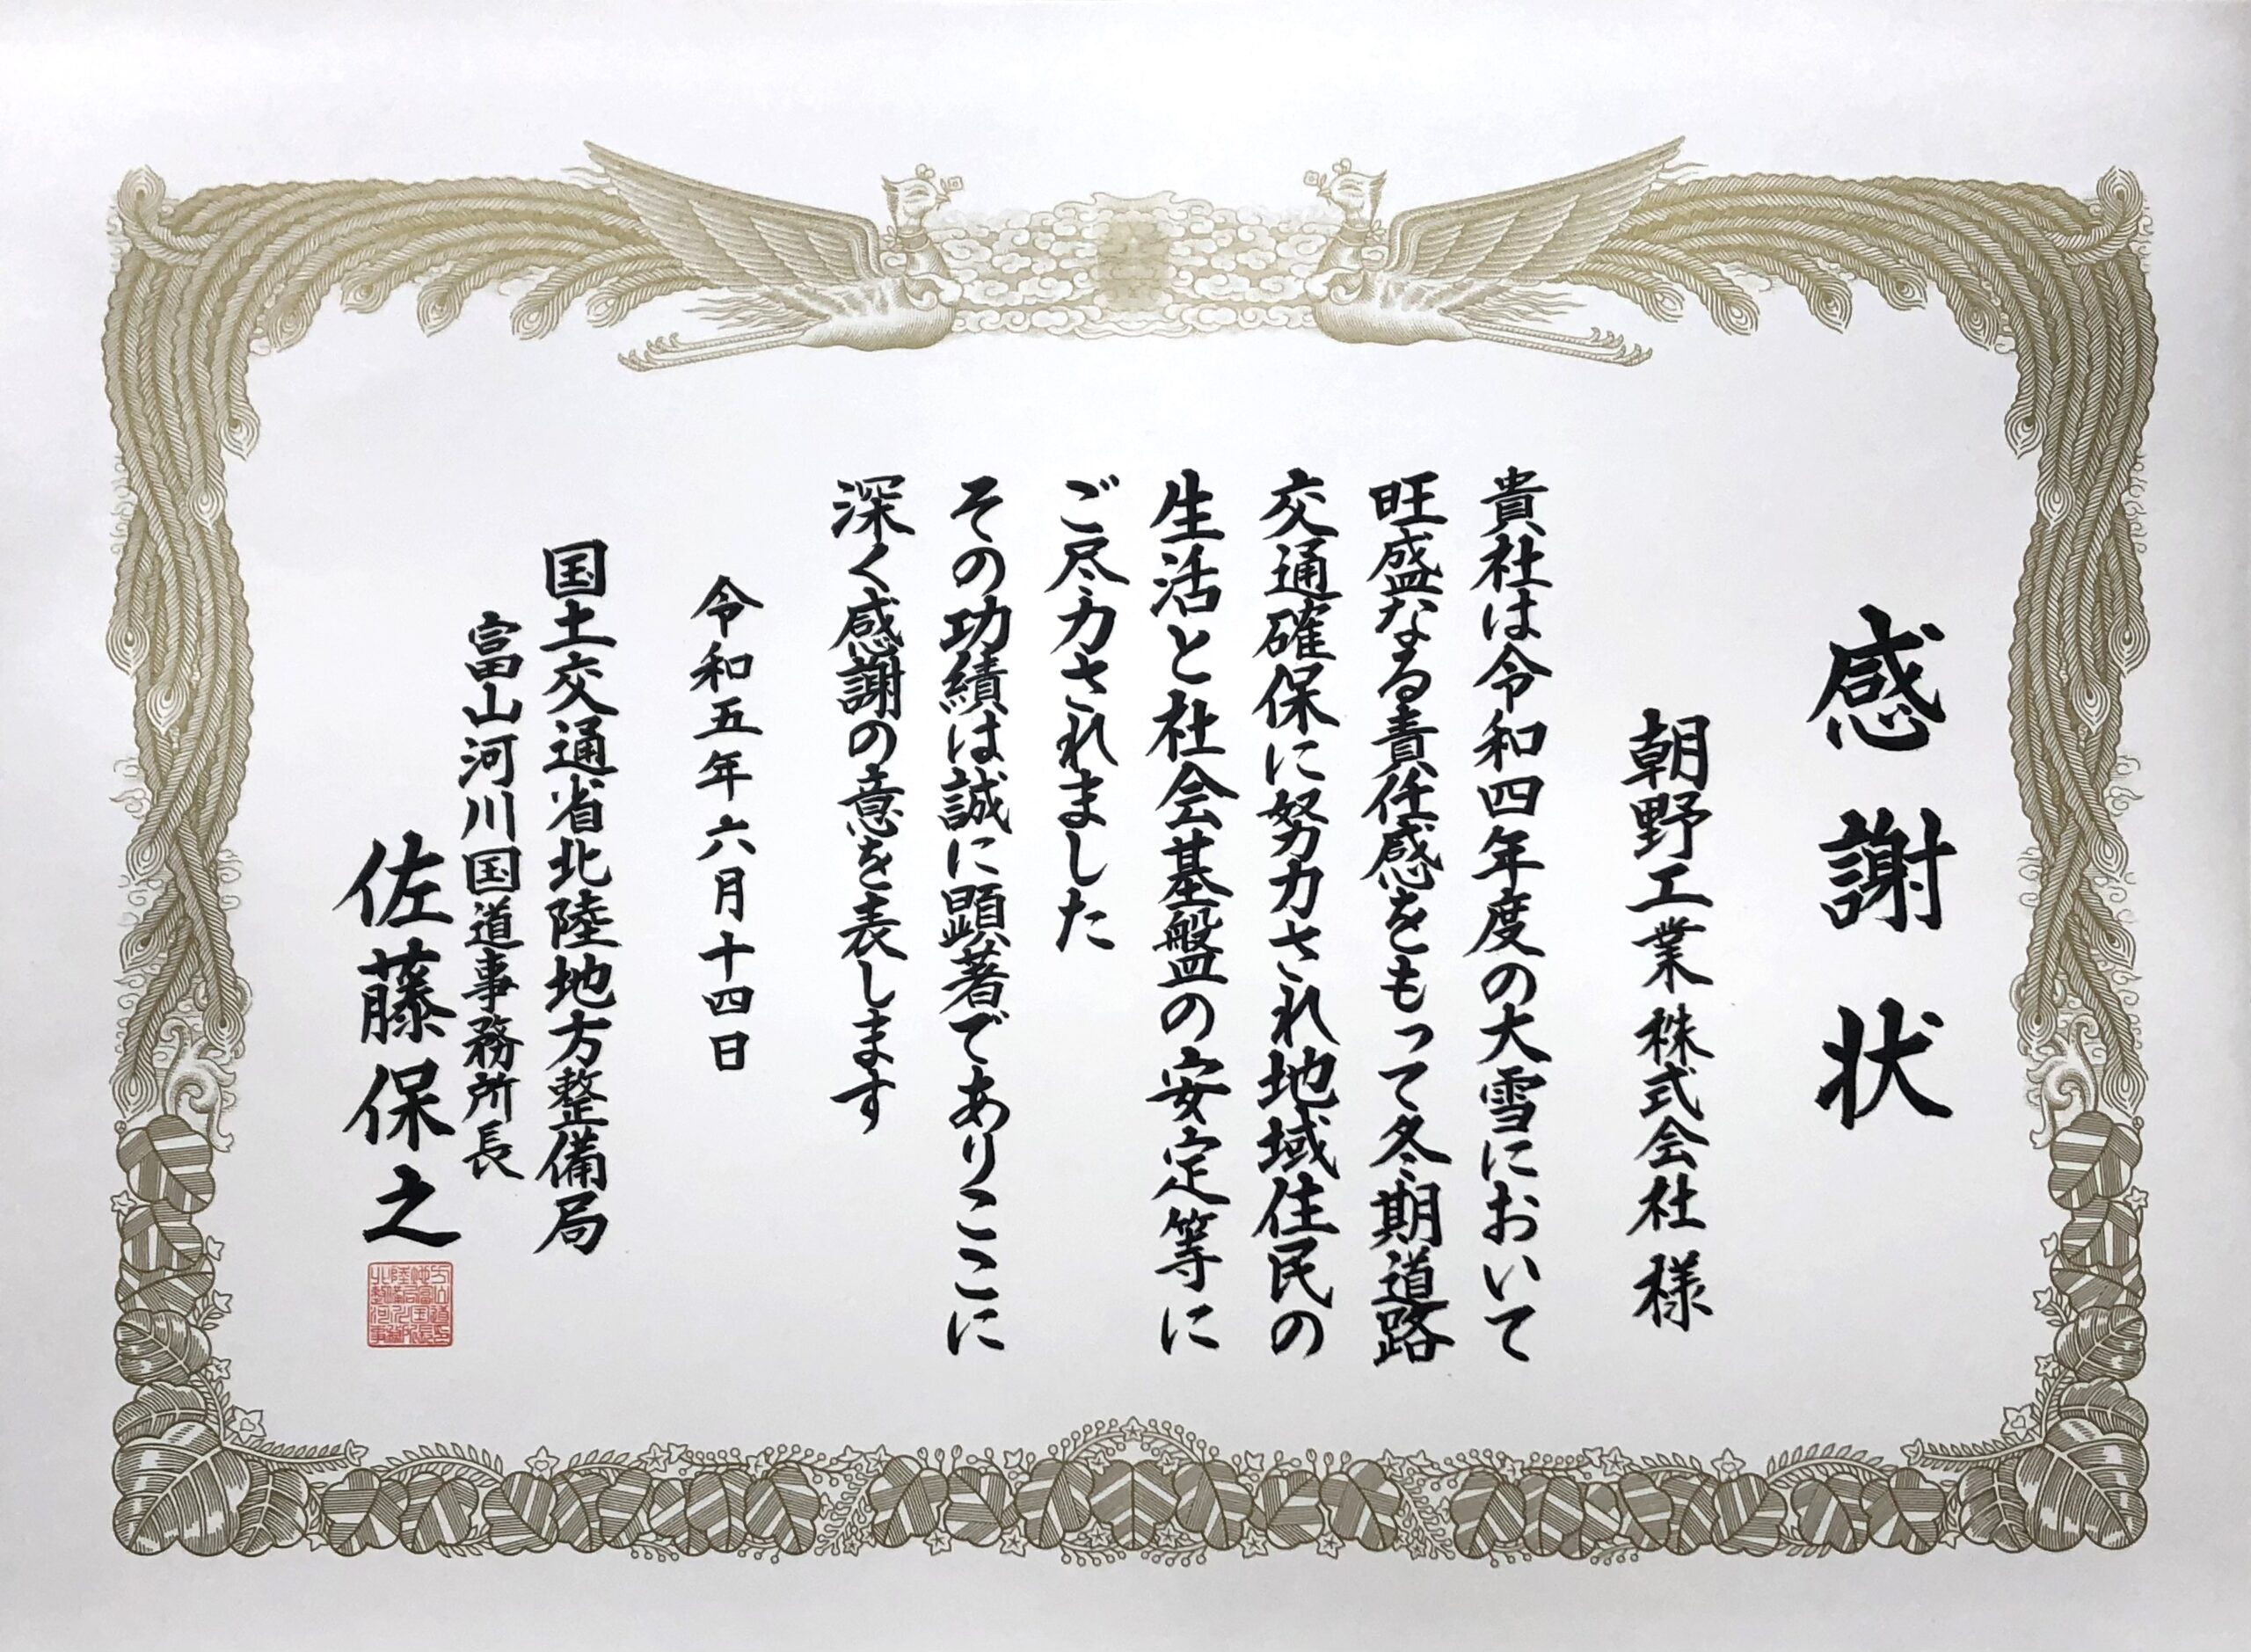 感謝状
朝野工業株式会社様
貴社は令和四年度の大雪において
旺盛なる責任感をもって冬期道路
交通確保に努力され地域住民の
生活と社会基盤の安定等に
ご尽力されました
その功績は誠に顕著でありここに
深く感謝の意を表します
令和五年六月十四日
国土交通省北陸地方整備局
富山河川国道事務所長
佐藤保之